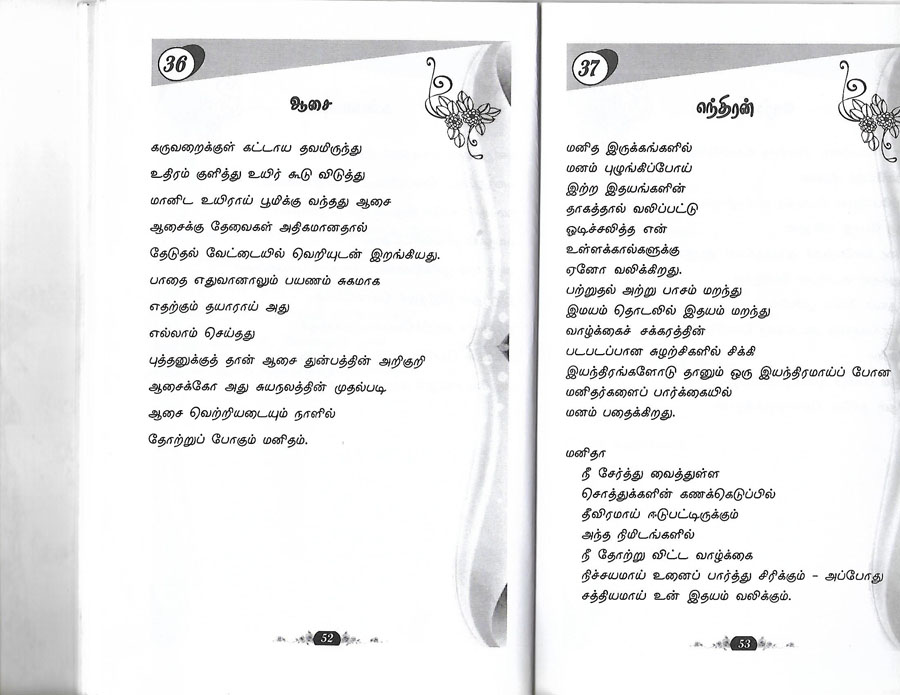 36
ஆசை
கருவறைக்குள் கட்டாய தவமிருந்து
உதிரம் குளித்து உயிர் கூடு விடுத்து
மானிட உயிராய் பூமிக்கு வந்தது ஆசை
ஆசைக்கு தேவைகள் அதிகமானதால்
தேடுதல் வேட்டையில் வெறியுடன் இறங்கியது.
பாதை எதுவானாலும் பயணம் சுகமாக
எதற்கும் தயாராய் அது
எல்லாம் செய்தது
புத்தனுக்குத் தான் ஆசை துன்பத்தின் அறிகுறி
ஆசைக்கோ அது சுயநலத்தின் முதல்படி
ஆசை வெற்றியடையும் நாளில்
தோற்றுப் போகும் மனிதம்.
52
37
எந்திரன்
மனித இருக்கங்களில்
மனம் புழுங்கிப்போய்
இற்ற இதயங்களின்
தாகத்தால் வலிப்பட்டு
ஒடிச்சலித்த என்
உள்ளக்கால்களுக்கு
ஏனோ வலிக்கிறது.
பற்றுதல் அற்று பாசம் மறந்து
இமயம் தொடலில் இதயம் மறந்து
வாழ்க்கைச் சக்கரத்தின்
படபடப்பான சுழற்சிகளில் சிக்கி
இயந்திரங்களோடு தானும் ஒரு இயந்திரமாய்ப் போன
மனிதர்களைப் பார்க்கையில்
மனம் பதைக்கிறது.
மனிதா
நீ சேர்த்து வைத்துள்ள
சொத்துக்களின் கணக்கெடுப்பில்
தீவிரமாய் ஈடுபட்டிருக்கும்
அந்த நிமிடங்களில்
நீ தோற்று விட்ட வாழ்க்கை
நிச்சயமாய் உனைப் பார்த்து சிரிக்கும் - அப்போது
சத்தியமாய் உன் இதயம் வலிக்கும்.
53